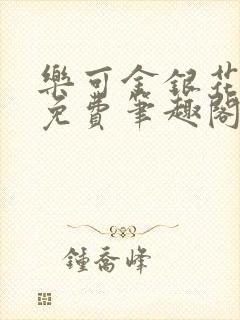 樂可金銀花
免費筆趣閣
鍾喬峰